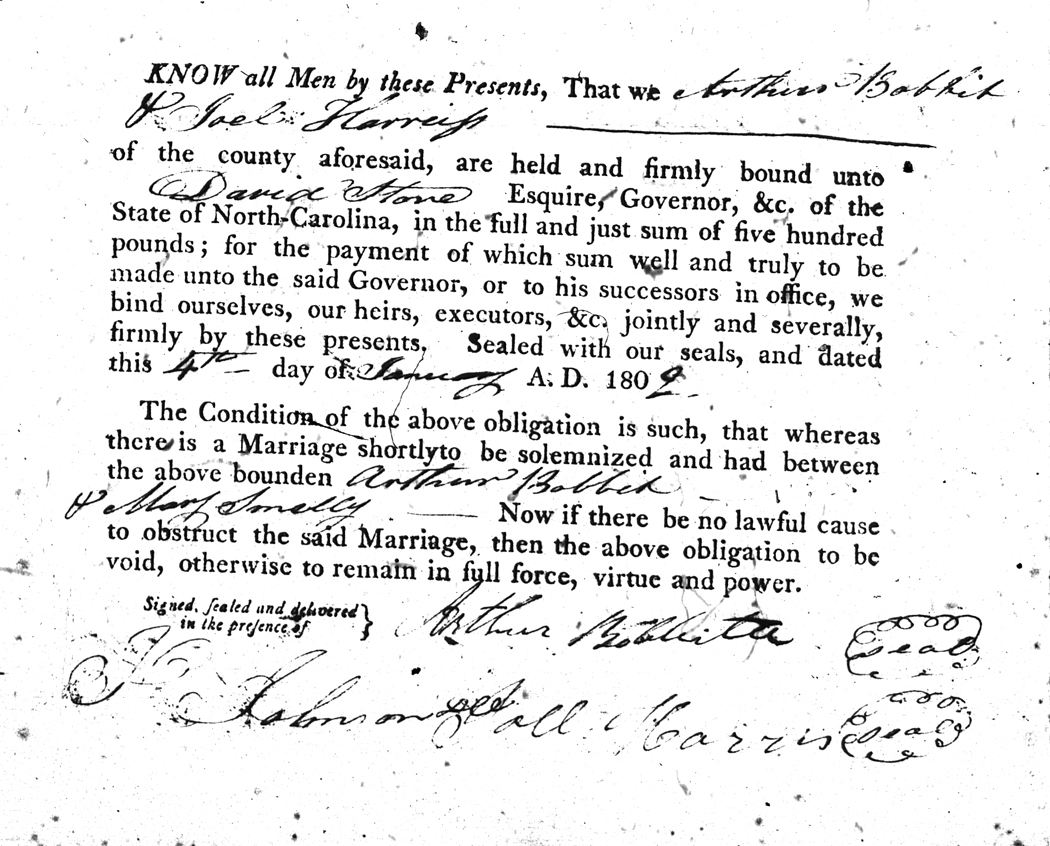 KNOW all Men by these Presents, That we Arthur Bobbit
& Joel Harriss
of the county aforesaid, are held and firmly bound unto
David Stone Esquire, Governor, &c. of the
State of North-Carolina, in the full and just sum of five hundred
pounds; for the payment of which sum well and truly to be
made unto the said Governor, or to his successors in office, we
bind ourselves, our heirs, executors, &c. jointly and severally,
firmly by these presents. Sealed with our seals, and dated
this 4th day of January A. D. 1809.
The Condition of the above obligation is such, that whereas
there is a Marriage shortlyto be solemnized and had between
the above bounden Arthur Bobbit
& Mary Smelly Now if there be no lawful cause
to obstruct the said Marriage, then the above obligation to be
void, otherwise to remain in full force, virtue and power.
Signed, ſealed and delivered } Arthur Bobbitt seal
in the preſence of
Johnson Joell Harris seal